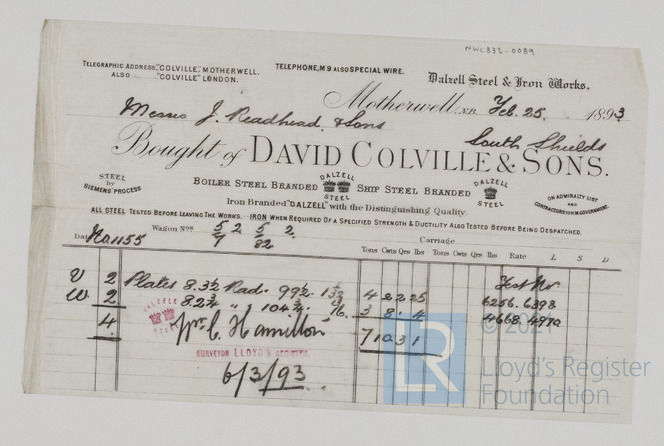 MWC832-0089
TELEGRAPHIC ADDRESS, "COLVILLE", MOTHERWELL.
ALSO "COLVILLE" LONDON.
TELEPHONE, M9 ALSO SPECIAL WIRE.
Dalzell Steel & Iron Works.
Motherwell, N.B. Feb. 25. 1893
Messrs J. Readhead & Sons
South Shields
Bought of DAVID COLVILLE & SONS.
STEEL by SIEMENS' PROCESS
BOILER STEEL BRANDED DALZELL STEEL SHIP STEEL BRANDED DALZELL STEEL
ON ADMIRALTY LIST AND CONTRACTORS FOR H.M. GOVERNMENT.
Iron Branded "DALZELL" with the Distinguishing Quality.
ALL STEEL TESTED BEFORE LEAVING THE WORKS. IRON WHEN REQUIRED OF A SPECIFIED STRENGTH & DUCTILITY ALSO TESTED BEFORE BEING DESPATCHED.
No 1155 Wagon Nos
Carriage
Tons Cwts Qrs lbs Tons Cwts Qrs lbs Rate L S D
V 2 Plates 8.3½ Rad. 99½ 4 2 2 25 Test No
W 2 8.2¾ " 104¾ 3 8 4 6256. 6398
4 4668. 4970
7 10 3 1
DALZELL STEEL
Wm C. Hamilton
SURVEYOR LLOYD'S REGISTER.
6/3/93
LR
© 2021
Lloyd's Register
Foundation